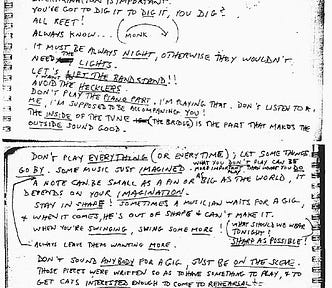 DISCRIMINATION IS IMPORTANT.
YOU'VE GOT TO DIG IT TO DIG IT, YOU DIG?
ALL REET!
ALWAYS KNOW... MONK
IT MUST BE ALWAYS NIGHT, OTHERWISE THEY WOULDN'T
NEED THE LIGHTS.
LET'S LIFT THE BAND STAND!!
I WANT TO AVOID THE HECKLERS.
DON'T PLAY THE PIANO PART, I'M PLAYING THAT. DON'T LISTEN TO
ME, I'M SUPPOSED TO BE ACCOMPANYING YOU!
THE INSIDE OF THE TUNE (THE BRIDGE) IS THE PART THAT MAKES THE
OUTSIDE SOUND GOOD.
DON'T PLAY EVERYTHING (OR EVERY TIME); LET SOME THINGS
GO BY. SOME MUSIC JUST IMAGINED. WHAT YOU DON'T PLAY CAN BE
MORE IMPORTANT THAN WHAT YOU DO
A NOTE CAN BE SMALL AS A PIN OR AS BIG AS THE WORLD, IT
DEPENDS ON YOUR IMAGINATION.
STAY IN SHAPE! SOMETIMES A MUSICIAN WAITS FOR A GIG,
& WHEN IT COMES, HE'S OUT OF SHAPE & CAN'T MAKE IT.
WHEN YOU'RE SWINGING, SWING SOME MORE!
(WHAT SHOULD WE WEAR
TONIGHT?
SHARP AS POSSIBLE!
ALWAYS LEAVE THEM WANTING MORE.
DON'T SOUND ANYBODY FOR A GIG, JUST BE ON THE SCENE.
THOSE PIECES WERE WRITTEN SO AS TO HAVE SOMETHING TO PLAY, & TO
GET CATS INTERESTED ENOUGH TO COME TO REHEARSAL!